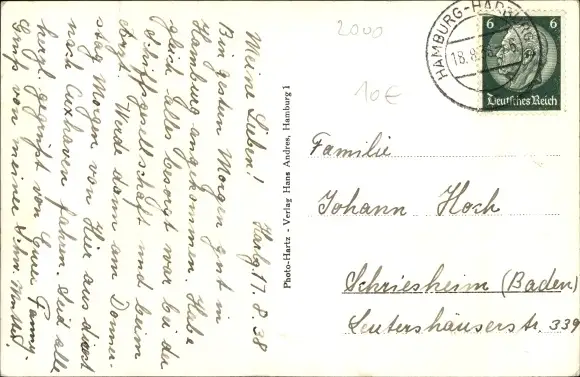 Meine Lieben! Harbg. 17.8.38
Bin gestern Morgen gut in
Hamburg angekommen. Habe
gleich alles besorgt war bei der
Schiffsgesellschaft und beim
Arzt. Werde dann am Donner-
stag Morgen von Hier aus direkt
nach Cuxhaven fahren. Seid alle
herzl. gegrüßt von Eurer Fanny.
Gruß von meiner Schw. Mutter
Photo-Hartz - Verlag Hans Andres, Hamburg 1
2000
10€
HAMBURG-HARBURG
18.8.38
6 6
Deutsches Reich
Familie
Johann Hoch
Schriesheim (Baden)
Leutershäuserstr. 339